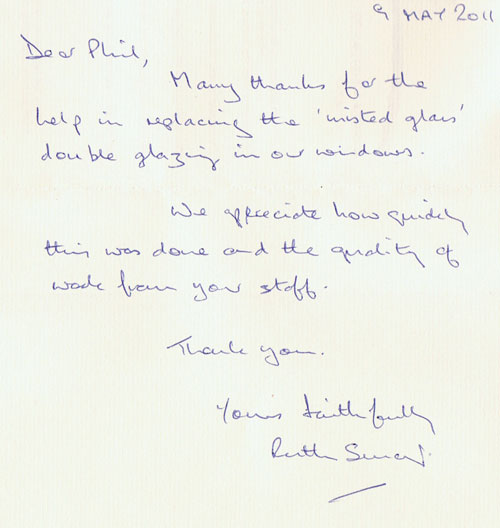 9 MAY 2011
Dear Phil,
Many thanks for the
help in replacing the 'misted glass'
double glazing in our windows.
We appreciate how quickly
this was done and the quality of
work from your staff.
Thank you.
Yours faithfully
Ruth